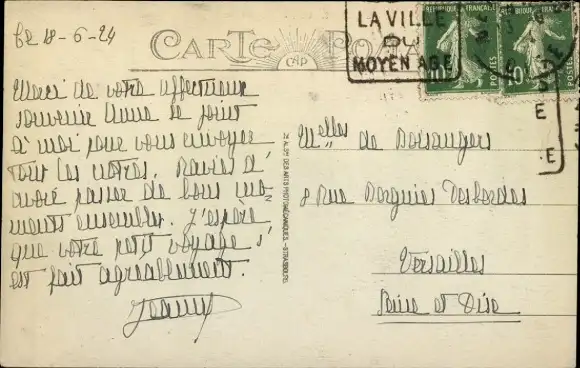 le 18-6-24
CARTE POSTALE
CAP
LA VILLE
DU
MOYEN AGE
REPUBLIQUE FRANÇAISE
10
POSTES
REPUBLIQUE FRANÇAISE
10
POSTES
Merci de votre affectueux
souvenir Anne se joint
à moi pour vous envoyer
tout les notres. Ravies d'
avoir passer de bons mo-
ments ensembles. J'espère
que votre petit voyage s'
est fait agréablement.
Jeanne
Melles de Boisangers
8 Rue Borgnies Desbordes
Versailles
Seine et Oise
DES ARTS PHOTOMÉCANIQUES. - STRASBOURG